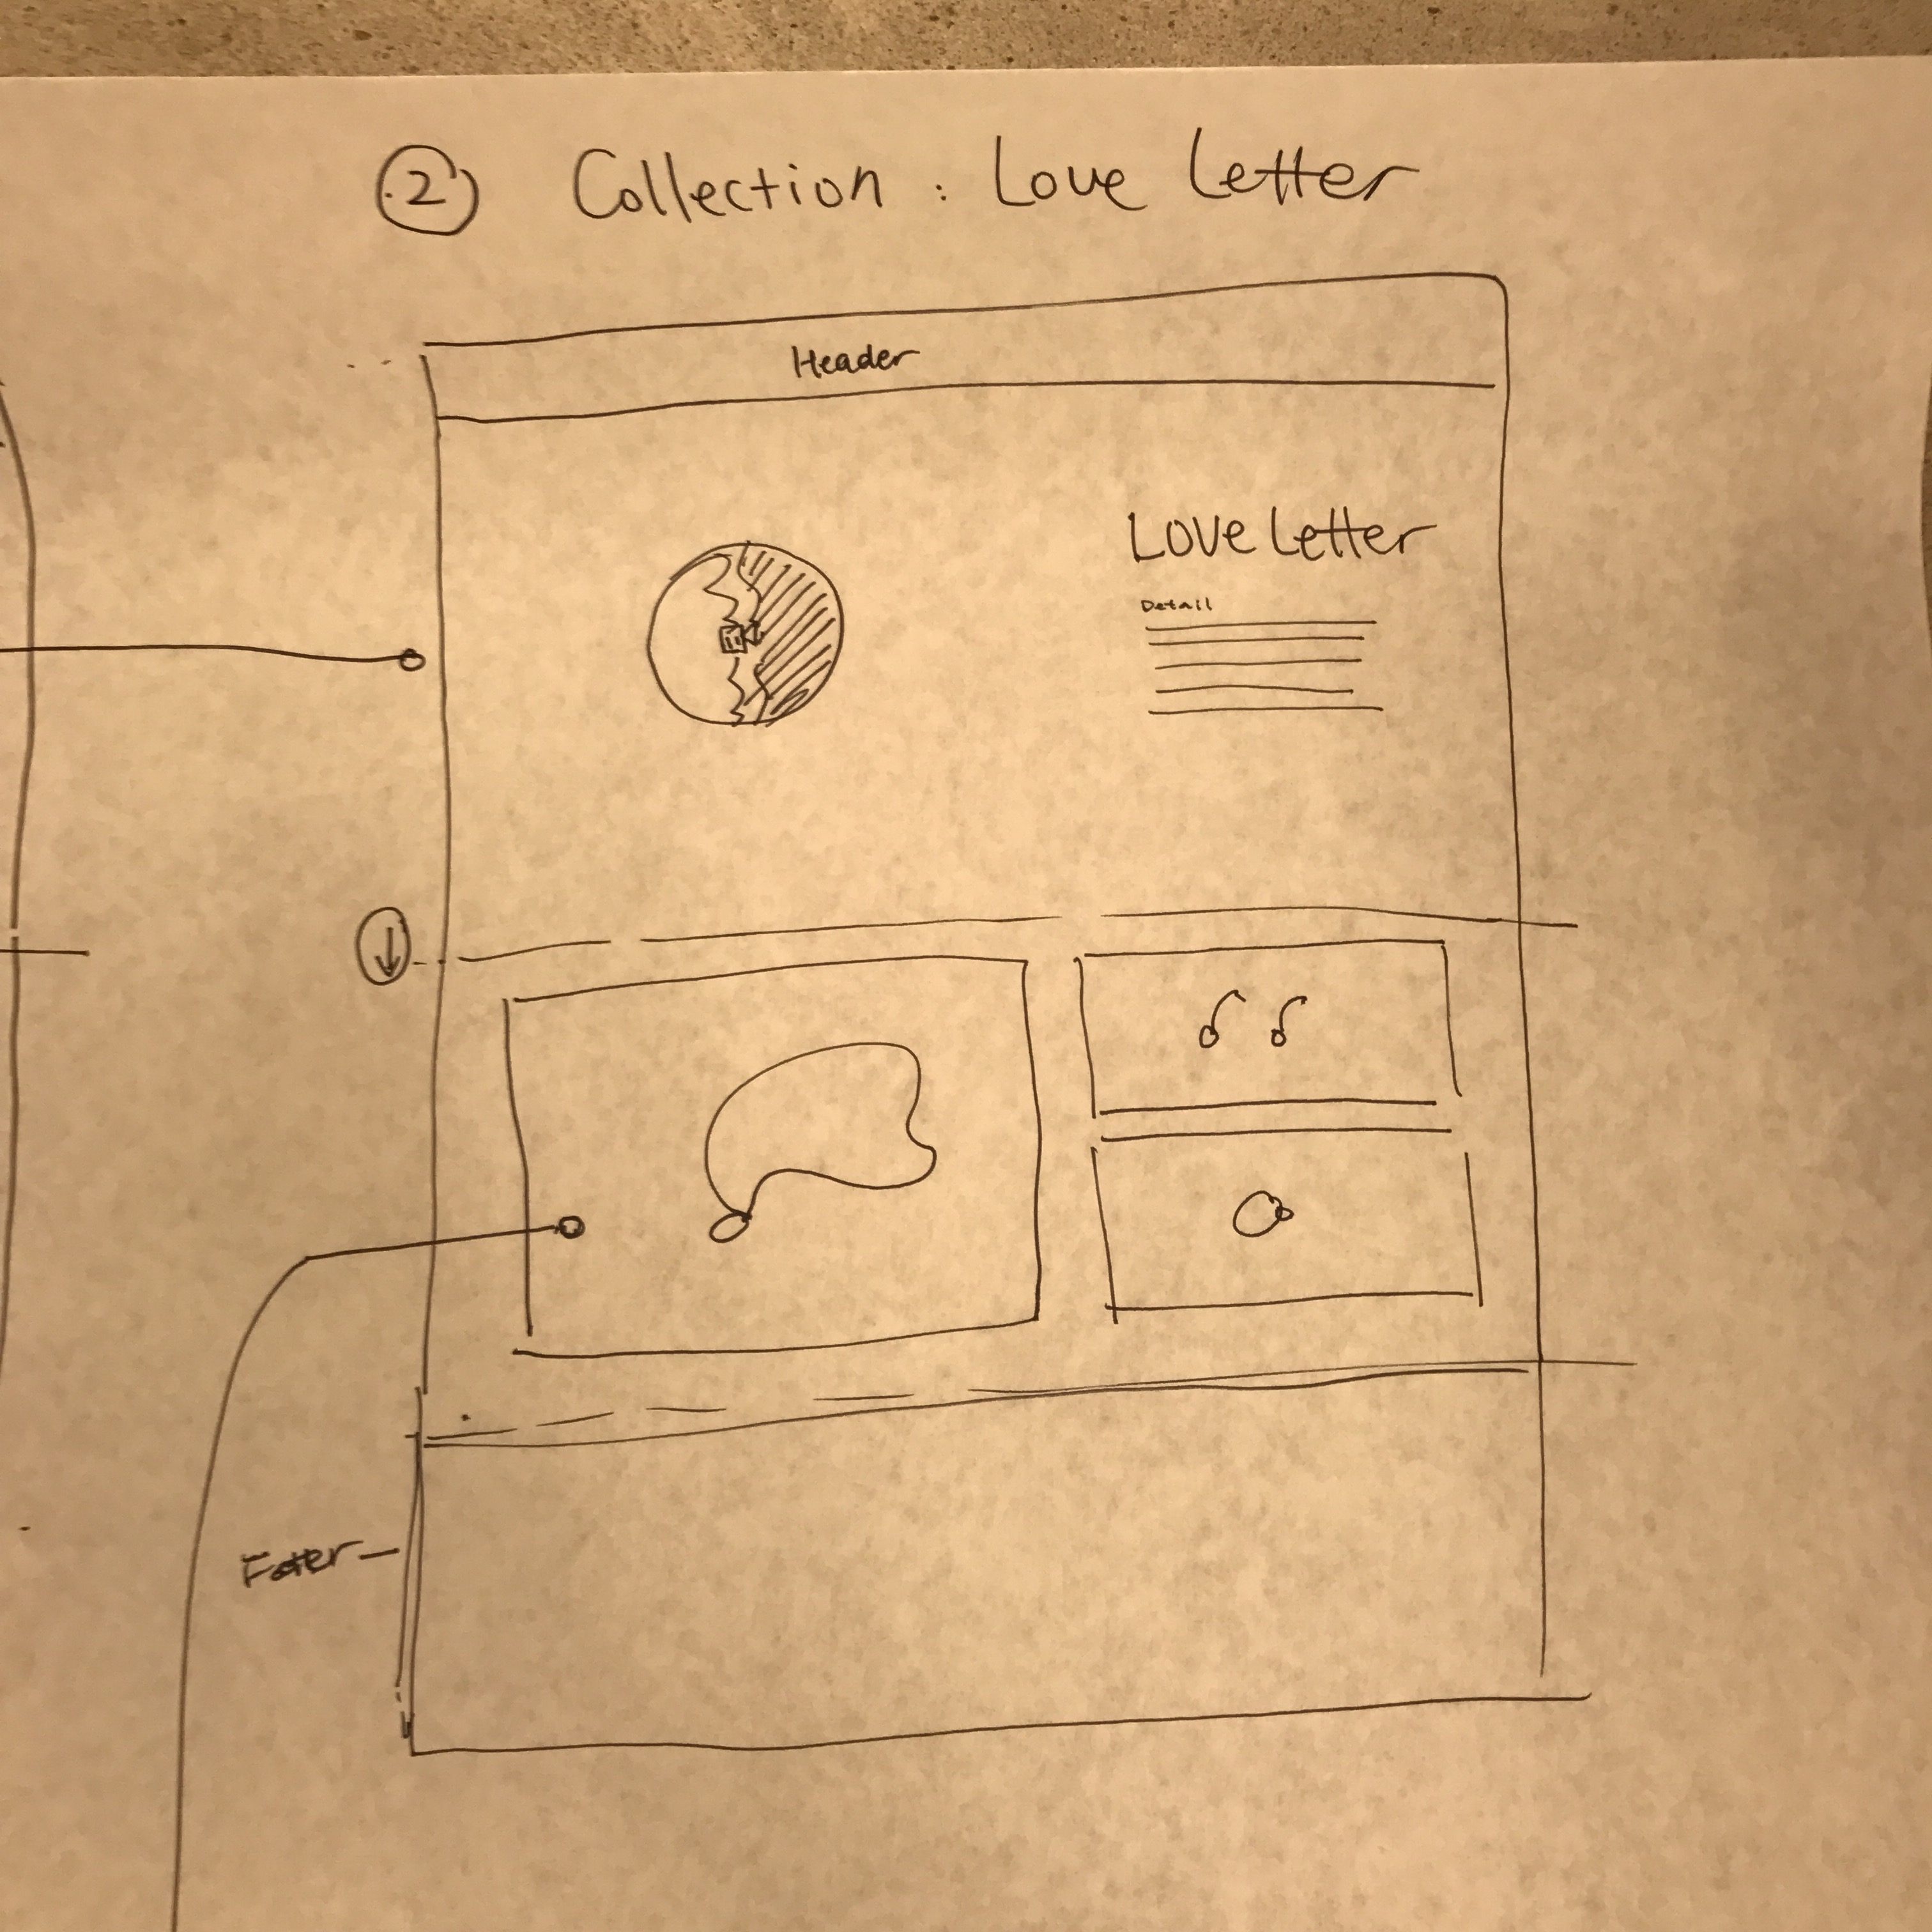 2 Collection : Love Letter
Header
Love Letter
Detail
Footer